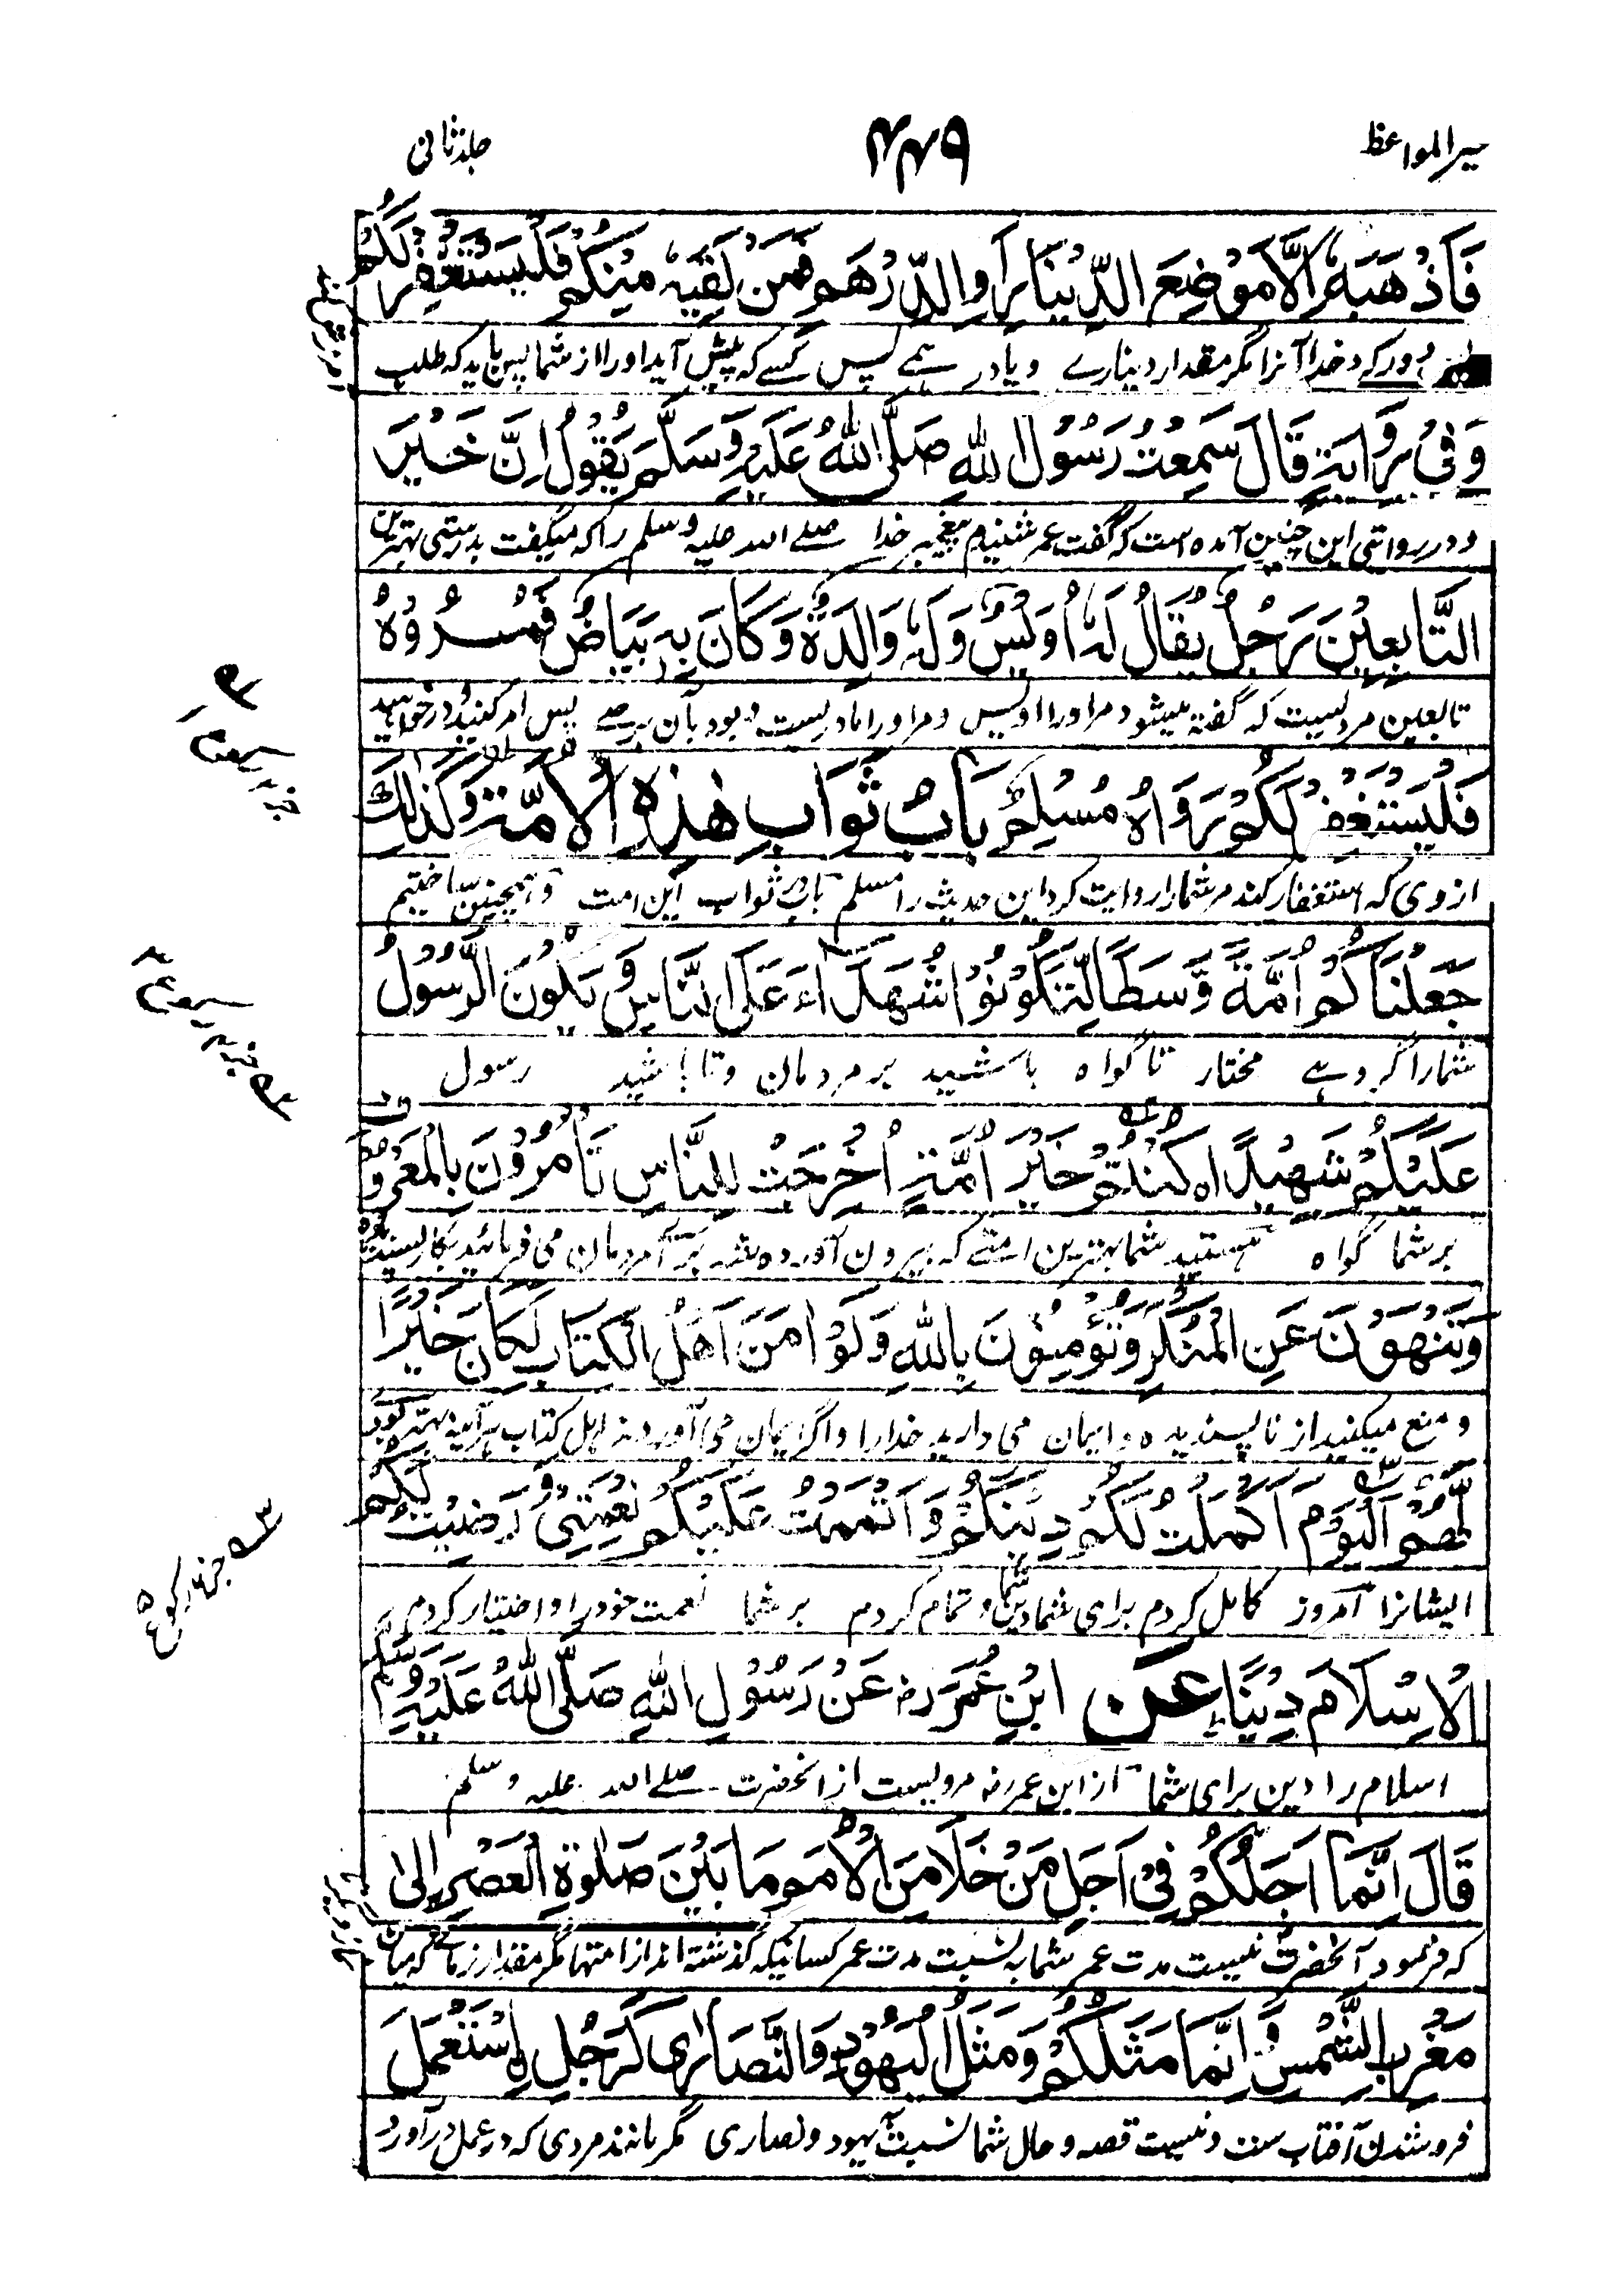 سیرالمواعظ
۴۴۹
جلد ثانی
فَاَذْهَبَهٗ اِلَّا مَوْضِعَ الدِّيْنَارِ اَوِ الدِّرْهَمِ فَمَنْ لَقِيَهٗ مِنْكُمْ فَلْيَسْتَغْفِرْ لَكُمْ
دور کرد خدا آنرا مگر مقدار دینارے و یا درہمے پس کسے کہ پیش آید او را از شما پس باید کہ طلب
وَفِيْ رِوَايَةٍ قَالَ سَمِعْتُ رَسُوْلَ اللّٰهِ صَلَّى اللّٰهُ عَلَيْهِ وَسَلَّمَ يَقُوْلُ اِنَّ خَيْرَ
و در روایتی این چنین آمده است که گفت عمر شنیدم پیغمبر خدا صلے الله علیه وسلم را که میگفت بدرستی بهترین
التَّابِعِيْنَ رَجُلٌ يُقَالُ لَهٗ اُوَيْسٌ وَلَهٗ وَالِدَةٌ وَكَانَ بِهٖ بَيَاضٌ فَمُرُوْهُ
تابعین مردیست که گفته میشود مر او را اویس و مر او را مادریست و بود بآن برصے پس امر کنید و درخواهید
فَلْيَسْتَغْفِرْ لَكُمْ رَوَاهُ مُسْلِمٌ بَابُ ثَوَابِ هٰذِهِ الْاُمَّةِ وَكَذٰلِكَ
از وی که استغفار کند مر شمارا روایت کرد این حدیث را مسلم باب در ثواب این امت و همچنین ساختیم
جَعَلْنَاكُمْ اُمَّةً وَّسَطًا لِّتَكُوْنُوْا شُهَدَآءَ عَلَى النَّاسِ وَيَكُوْنَ الرَّسُوْلُ
شمارا گروہے مختار تا گواه باشید بر مردمان و تا باشد رسول
عَلَيْكُمْ شَهِيْدًا كُنْتُمْ خَيْرَ اُمَّةٍ اُخْرِجَتْ لِلنَّاسِ تَاْمُرُوْنَ بِالْمَعْرُوْفِ
بر شما گواه هستید شما بهترین امتے که بیرون آورده شد برآمردمان می فرمائید بکار پسندیده
وَتَنْهَوْنَ عَنِ الْمُنْكَرِ وَتُؤْمِنُوْنَ بِاللّٰهِ وَلَوْ اٰمَنَ اَهْلُ الْكِتَابِ لَكَانَ خَيْرًا
و منع میکنید از ناپسندیده و ایمان می دارید خدا را و اگر ایمان می آوردند اہل کتاب ہرآینہ بہتر بودے
لَّهُمْ اَلْيَوْمَ اَكْمَلْتُ لَكُمْ دِيْنَكُمْ وَاَتْمَمْتُ عَلَيْكُمْ نِعْمَتِيْ وَرَضِيْتُ لَكُمُ
ایشانرا امروز کامل کردم برای شما دین شما و تمام کردم بر شما نعمت خود را و اختیار کردم
الْاِسْلَامَ دِيْنًا عَنِ ابْنِ عُمَرَ رض عَنْ رَسُوْلِ اللّٰهِ صَلَّى اللّٰهُ عَلَيْهِ وَسَلَّمَ
اسلام را دین برای شما از ابن عمر رض مرویست از آنحضرت صلے الله علیه وسلم
قَالَ اِنَّمَا اَجَلُكُمْ فِيْ اَجَلِ مَنْ خَلَا مِنَ الْاُمَمِ مَا بَيْنَ صَلٰوةِ الْعَصْرِ اِلٰى
که فرمود آنحضرت نیست مدت عمر شما به نسبت مدت عمر کسانیکه گذشته اند از امتها مگر مقدار زمانے که میان
مَغْرِبِ الشَّمْسِ وَ اِنَّمَا مَثَلُكُمْ وَمَثَلُ الْيَهُوْدِ وَالنَّصَارٰى كَرَجُلٍ اِسْتَعْمَلَ
فروشدن آفتاب ست و نیست قصه و حال شما نسبت بیهود و نصاری مگر مانند مردی که در عمل در آورد